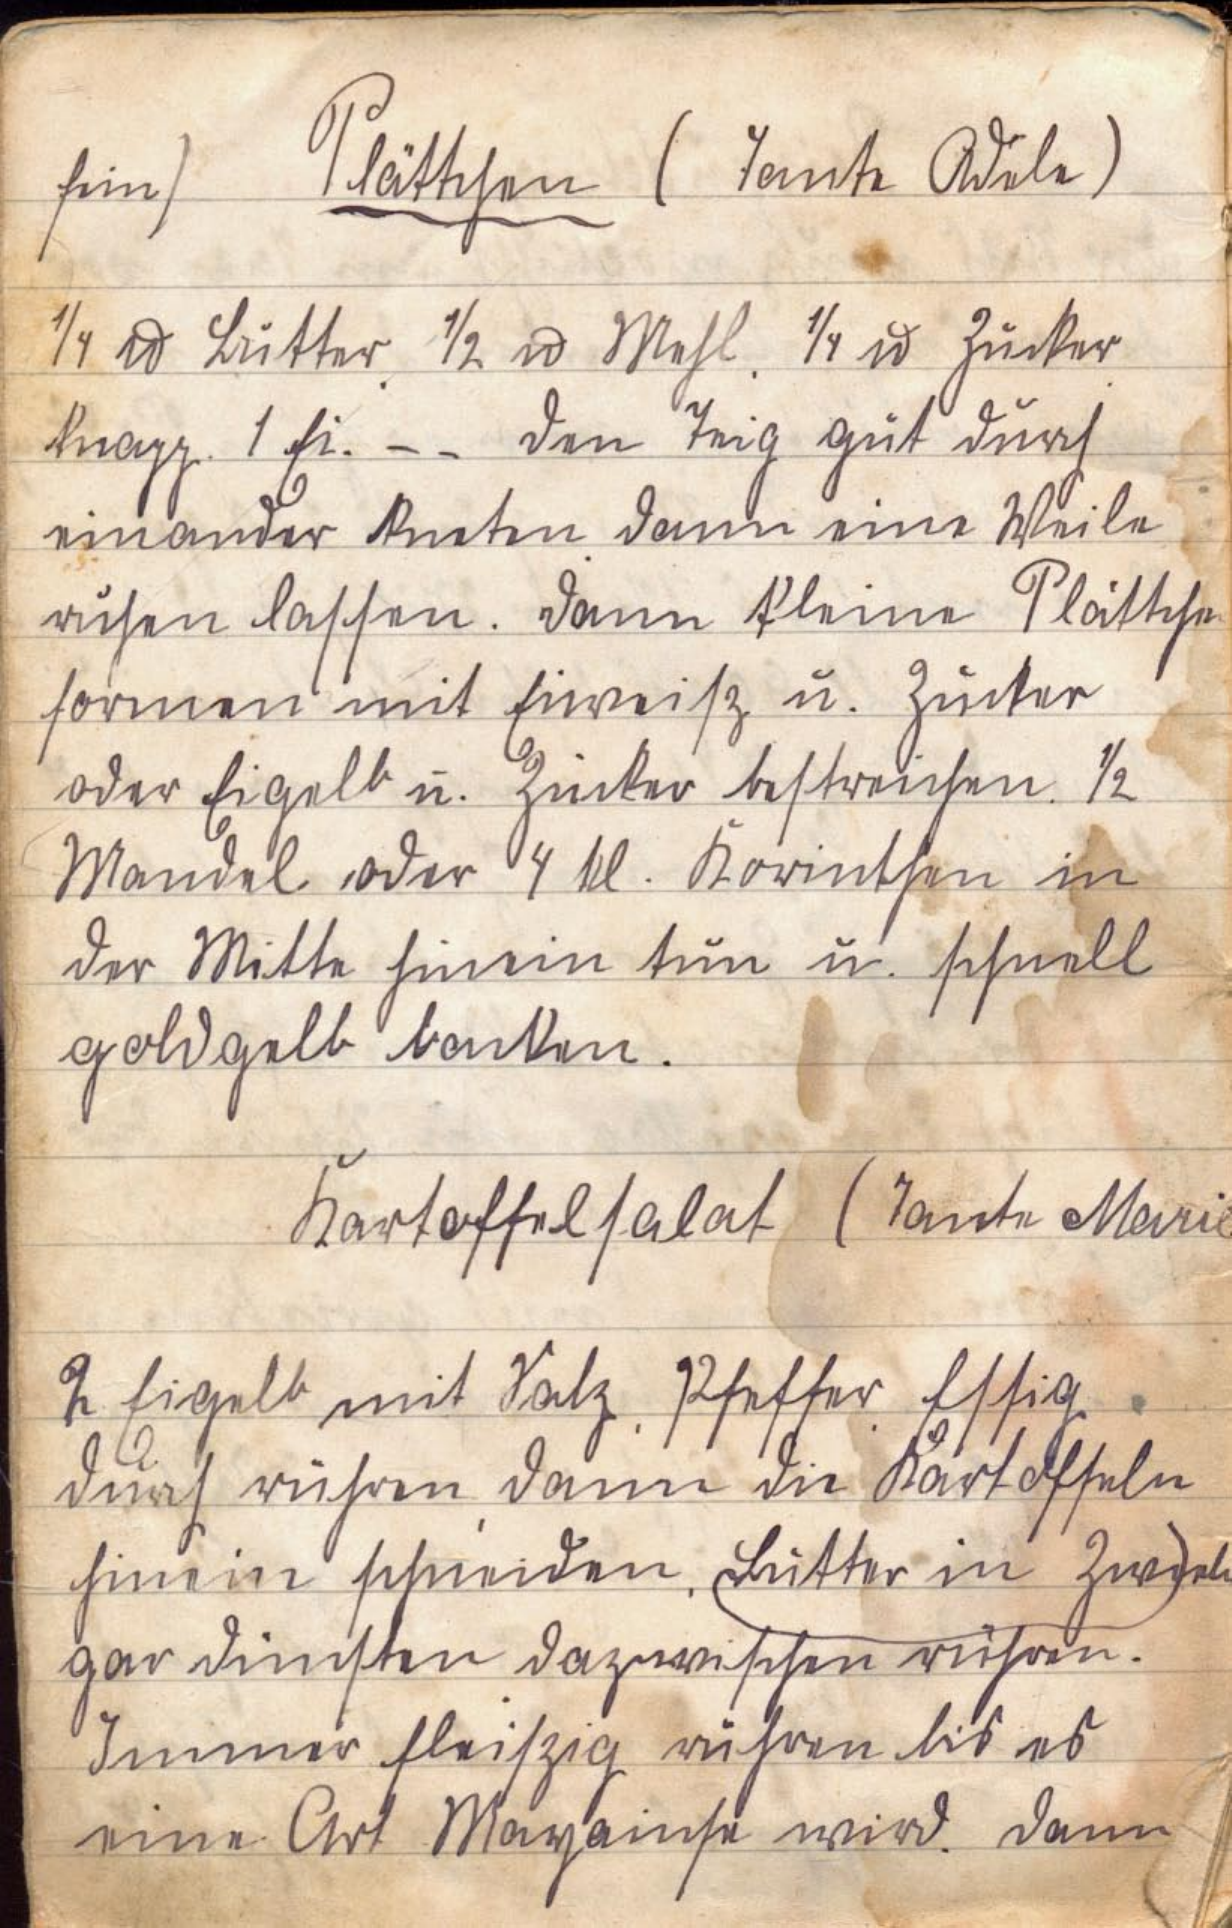 fein) Plättchen ( Tante Adele)
1/4 ℔ Butter, 1/2 ℔ Mehl, 1/4 ℔ Zucker
knapp. 1 Ei. - - den Teig gut durch
einander kneten, dann eine Weile
ruhen lassen. Dann kleine Plättche
formen mit Eiweisz u. Zucker
oder Eigelb u. Zucker bestreichen. 1/2
Mandel oder 4 kl. Korinthen in
der Mitte hinein tun u. schnell
goldgelb backen.
Kartoffelsalat (Tante Marie
2 Eigelb mit Salz, Pfeffer, Essig
durch rühren, dann die Kartoffeln
hinein schneiden, (Butter in Zwiebeln)
gar dünsten dazwischen rühren.
Immer fleiszig rühren bis es
eine Art Mayainse wird. Dann